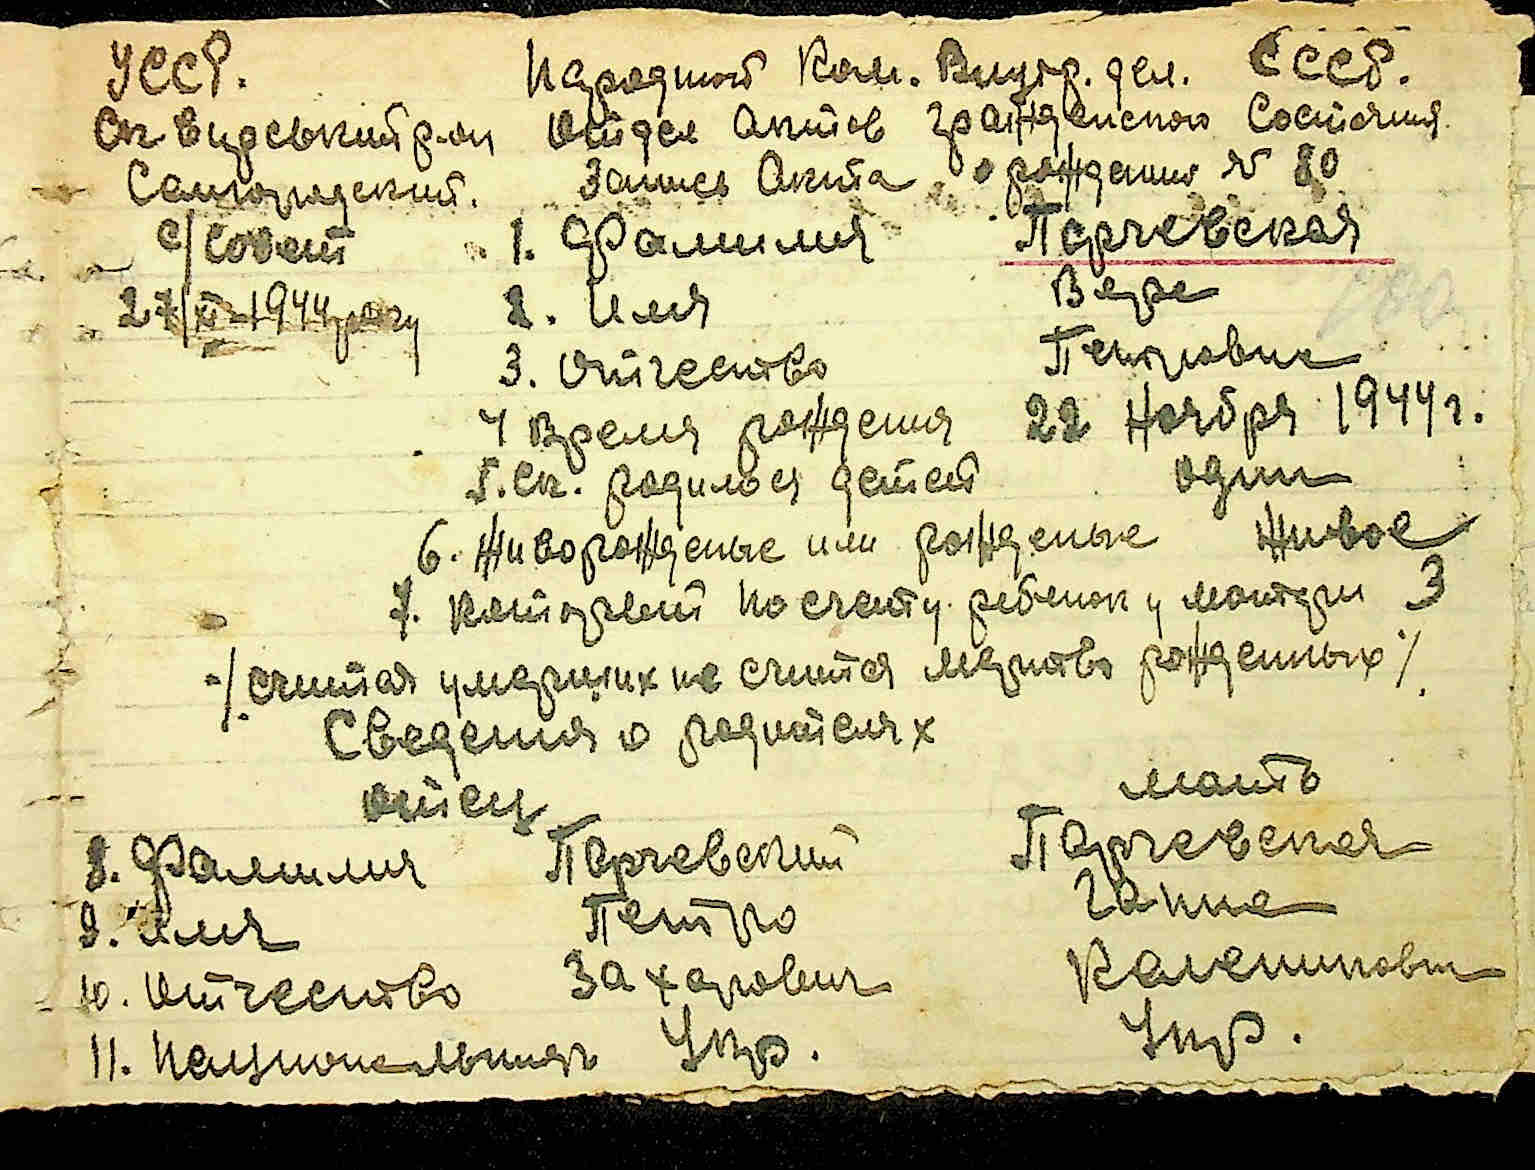 УССР. Народный Ком. Внутр. дел. СССР.
р-он Отдел Актов Гражденского Состояния
Самгородский. Запись Акта о рождении № 80
с/совет 1. Фамилия Парчевская
27/XI-1944року 2. Имя Вера
3. Отчество Петровна
4 Время рождения 22 Ноября 1944г.
5. Ск. родилося детей один
6. Живорожденые или рожденые Живое
7. Который по счету ребенок у матери 3
/считая умерших не считая мертво рожденных/
Сведения о родителях
отец мать
8. Фамилия Парчевский Парчевская
9. Имя Петро Ганна
10. Отчество Захарович
11. Национальность Укр. Укр.